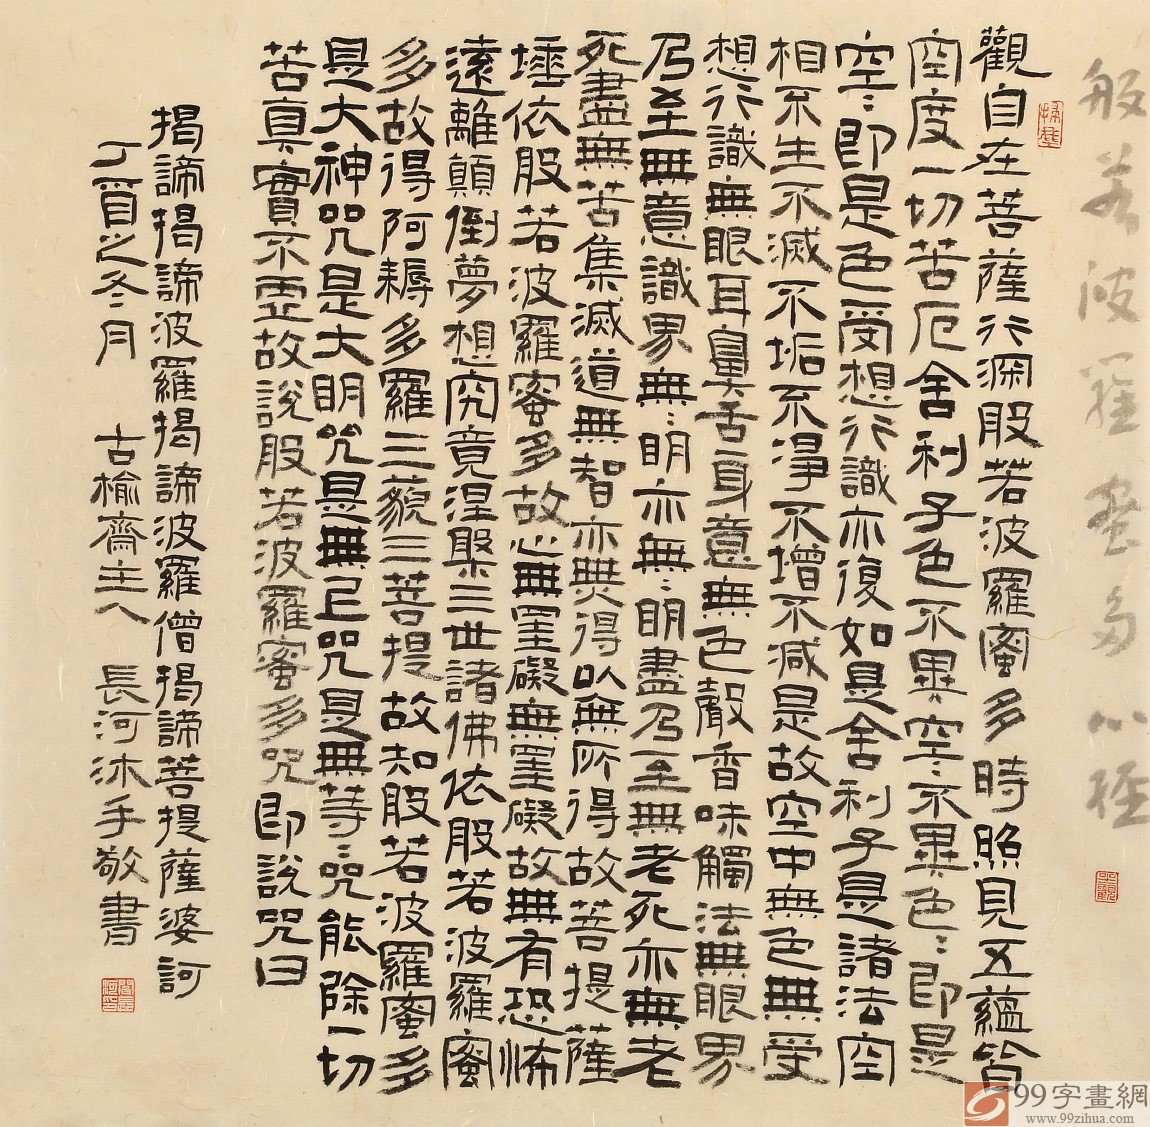 般若波羅蜜多心經
觀自在菩薩行深般若波羅蜜多時照見五蘊皆
空度一切苦厄舍利子色不異空〻不異色〻即是
空〻即是色受想行識亦復如是舍利子是諸法空
相不生不滅不垢不淨不增不減是故空中無色無受
想行識無眼耳鼻舌身意無色聲香味觸法無眼界
乃至無意識界無〻明亦無〻明盡乃至無老死亦無老
死盡無苦集滅道無智亦無得以無所得故菩提薩
埵依般若波羅蜜多故心無罣礙無罣礙故無有恐怖
遠離顛倒夢想究竟涅槃三世諸佛依般若波羅蜜
多故得阿耨多羅三藐三菩提故知般若波羅蜜多
是大神咒是大明咒是無上咒是無等〻咒能除一切
苦真實不虛故說般若波羅蜜多咒即說咒曰
揭諦揭諦波羅揭諦波羅僧揭諦菩提薩婆訶
丁酉之冬月 古榆齋主人 長河沐手敬書
99字畫網
www.99zihua.com